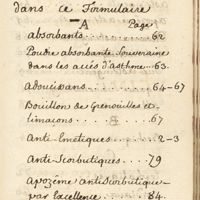 dans ce Formulaire
A Page
absorbants......62
Poudre absorbante Souveraine
dans les accès d'asthme..63.
adoucissans.....64-67
Bouillon de Grenouilles et
limaçons.......67
Anti-Emétiques....2-3
Anti-Scorbutiques....79
Apozème antiscorbutique
par excellence...84.